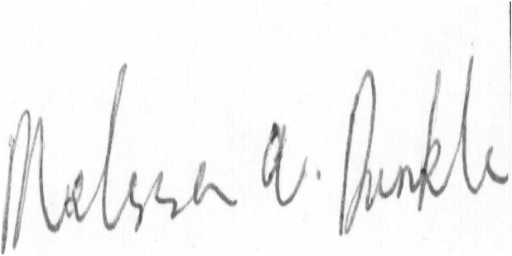 Melissa A. Dunkle